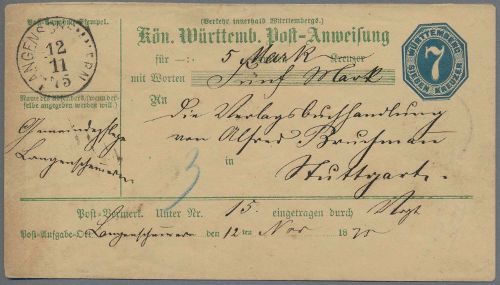 Post-Aufgabe-Stempel.
(Verkehr innerhalb Württembergs.)
LANGENS
12
11
5
Kön. Württemb. Post-Anweisung
für —: 5 Mark Kreuzer
mit Worten Fünf Mark
WÜRTTEMBERG
7
SIEBEN KREUZER
Name des Absenders (wenn derselbe
angegeben werden will.)
An
Gemeindepflege
Langenschemmern
die Verlagsbuchhandlung
von Alfred Bruckmann
in
Stuttgart.
3
Post-Vermerk. Unter Nr. 15. eingetragen durch Vogt
Post-Aufgabe-Ort Langenschemmern den 12ten Nov 1875